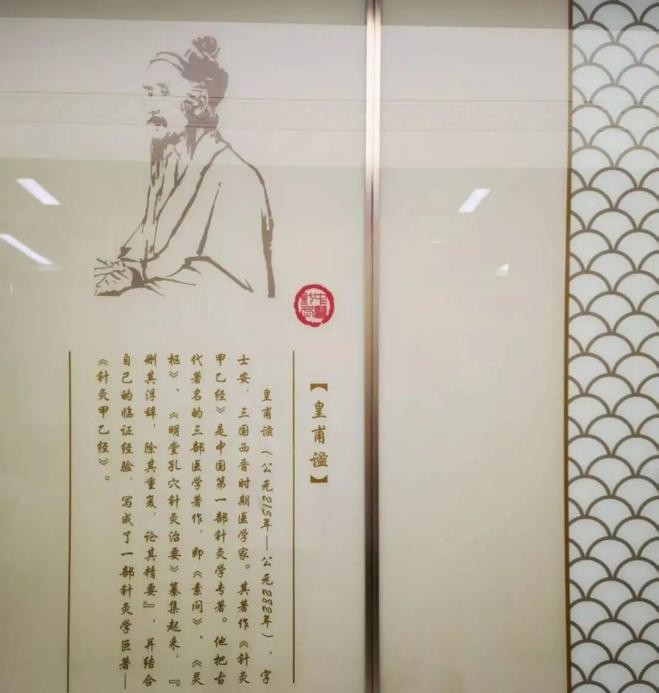 【皇甫谧】
皇甫谧（公元215年—公元282年），字
士安，三国西晋时期医学家。其著作《针灸
甲乙经》是中国第一部针灸学专著。他把古
代著名的三部医学著作，即《素问》、《灵
枢》、《明堂孔穴针灸治要》纂集起来，『
删其浮辞，除其重复，论其精要』，并结合
自己的临证经验，写成了一部针灸学巨著—
《针灸甲乙经》。